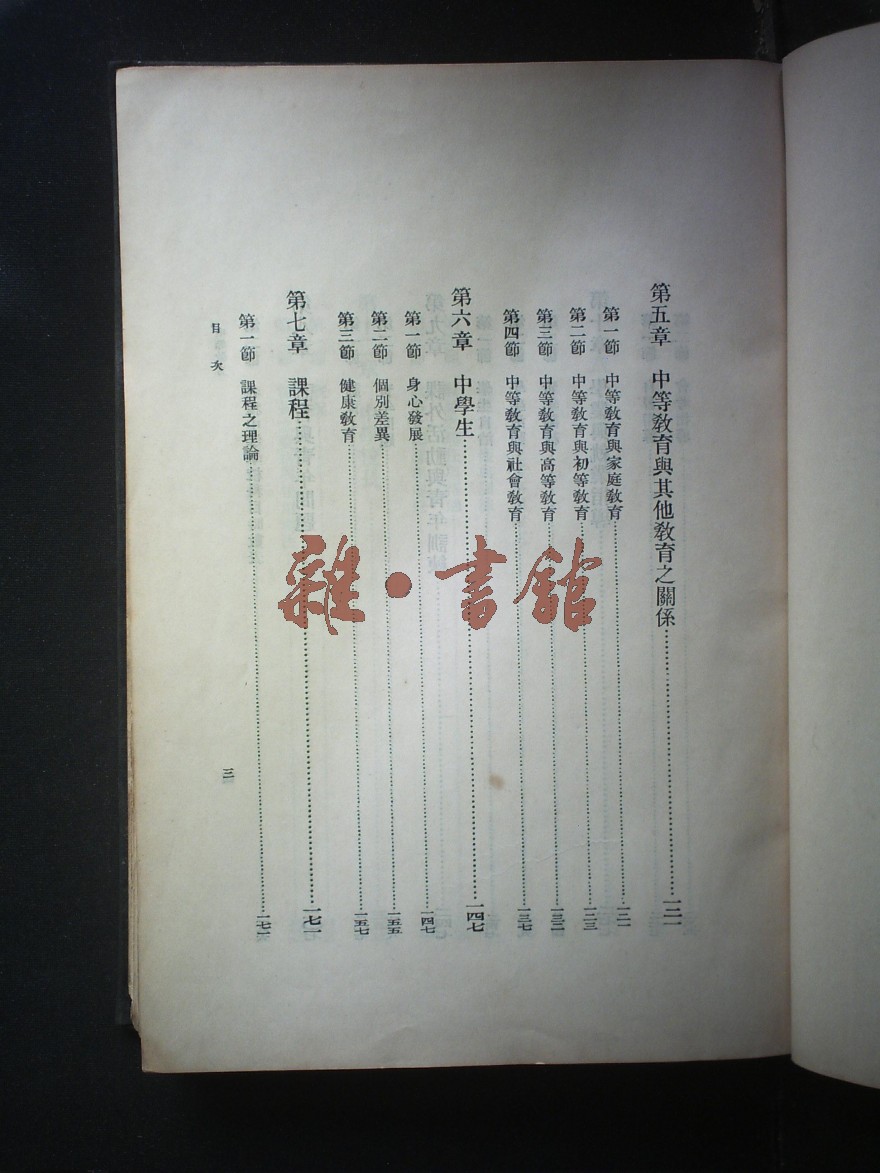 第五章　中等敎育與其他敎育之關係……一二一
第一節　中等敎育與家庭敎育……一二一
第二節　中等敎育與初等敎育……一二三
第三節　中等敎育與高等敎育……一三二
第四節　中等敎育與社會敎育……一三七
第六章　中學生……一四七
第一節　身心發展……一四七
第二節　個別差異……一五五
第三節　健康敎育……一五七
第七章　課程……一七一
第一節　課程之理論……一七一
目次
三
雜·書館